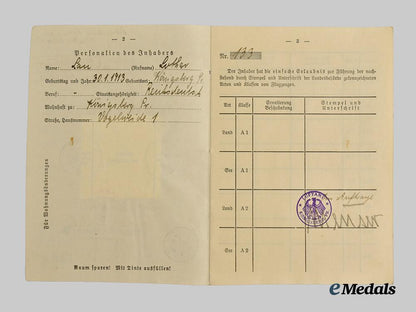 — 2 —
Personalien des Inhabers
Name: Lau (Rufname) Lothar
Geburtstag und Jahr 30.1.1913 Königsberg Pr.
Beruf: – Staatsangehörigkeit: Reichsdeutsch
Wohnhaft zu: Königsberg Pr.
Straße, Hausnummer: Vogelweide 1
Für Wohnungsänderungen
Raum sparen! Mit Tinte ausfüllen!
— 3 —
Nr. 133
Der Inhaber hat die einfache Erlaubnis zur Führung der nach-
stehend durch Stempel und Unterschrift der Landesbehörde gekennzeichneten
Arten und Klassen von Flugzeugen.
Art Klasse Erweiterung Beschränkung Stempel und Unterschrift
Land A 1
See A 1
Land A 2
See A 2
eMedals